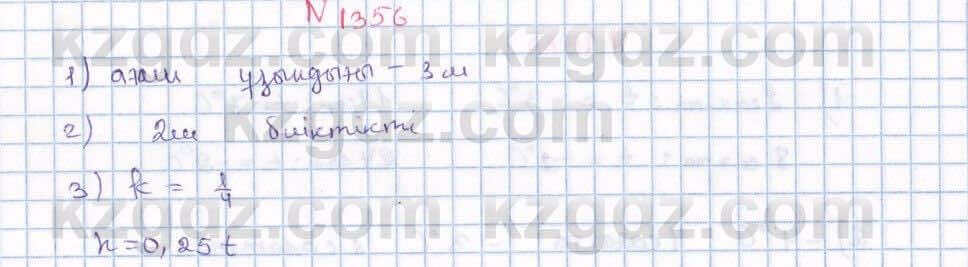 N 1356
1) ағаш ұзындығы - 3 м
2) 2 м биіктікті
3) k = 1/4
h = 0,25 t
kzgdz.com kzgdz.com
kzgdz.com
kzgdz.com kzgdz.com